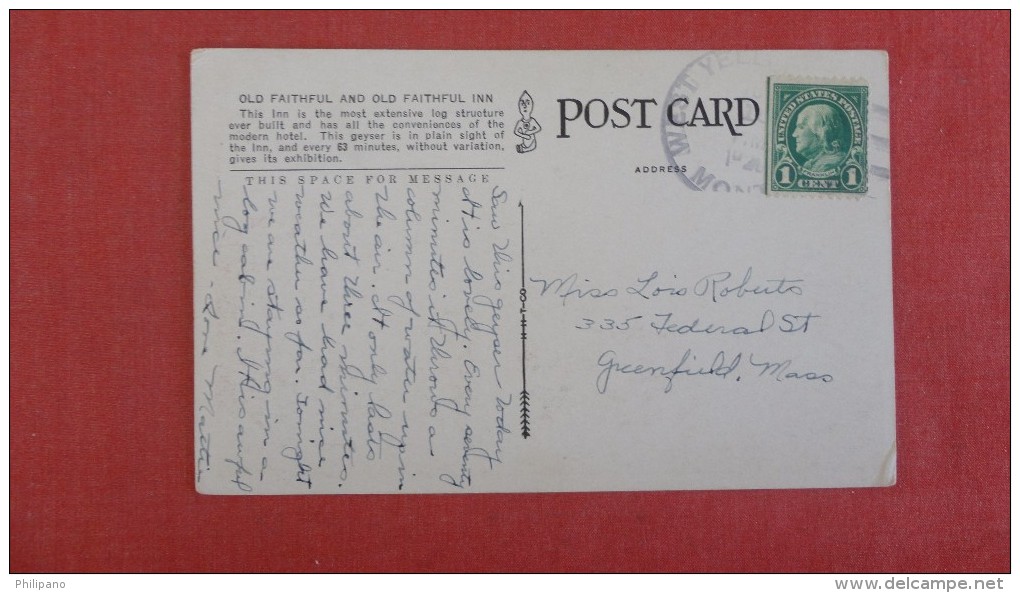 OLD FAITHFUL AND OLD FAITHFUL INN
This Inn is the most extensive log structure
ever built and has all the conveniences of the
modern hotel. This geyser is in plain sight of
the Inn, and every 63 minutes, without variation,
gives its exhibition.
THIS SPACE FOR MESSAGE
Saw this geyser today
It is lovely. Every seventy
minutes it throws a
column of water up in
the air. It only lasts
about three minutes.
We have had nice
weather so far. Tonight
we are staying in a
log cabin. It is awful
nice - Love Mattie
H-H-T-CO
POST CARD
ADDRESS
WEST YELL
MONT
UNITED STATES POSTAGE
FRANKLIN
1 CENT 1
Miss Lois Roberts
335 Federal St
Greenfield, Mass
Philipano
www.delcampe.net